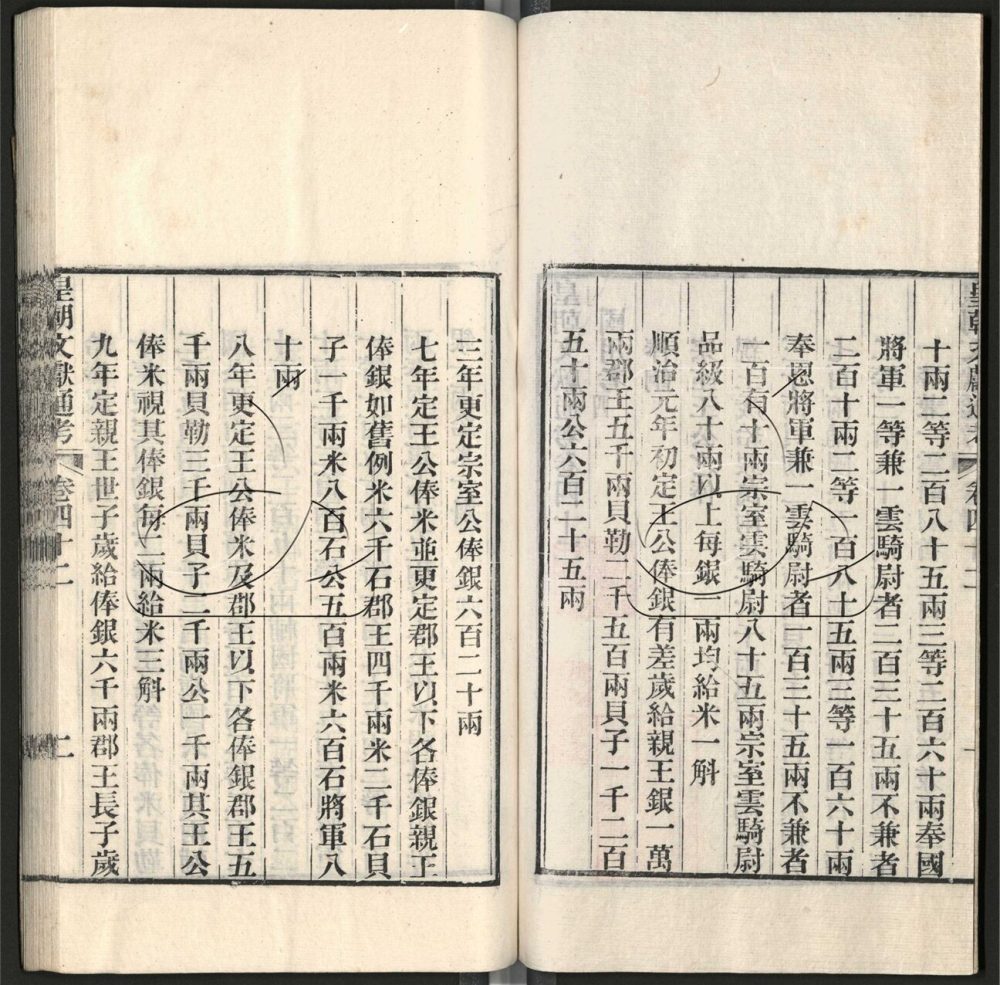 皇朝文獻通考 卷四十二
十兩二等二百八十五兩三等二百六十兩奉國
將軍一等兼一雲騎尉者二百三十五兩不兼者
二百十兩二等一百八十五兩三等一百六十兩
奉恩將軍兼一雲騎尉者一百三十五兩不兼者
一百有十兩宗室雲騎尉八十五兩宗室雲騎尉
品級八十兩以上每銀一兩均給米一斛
順治元年初定王公俸銀有差歲給親王銀一萬
兩郡王五千兩貝勒二千五百兩貝子一千二百
五十兩公六百二十五兩
三年更定宗室公俸銀六百二十兩
七年定王公俸米並更定郡王以下各俸銀親王
俸銀如舊例米六千石郡王四千兩米二千石貝
子一千兩米八百石公五百兩米六百石將軍八
十兩
八年更定王公俸米及郡王以下各俸銀郡王五
千兩貝勒三千兩貝子二千兩公一千兩其王公
俸米視其俸銀每二兩給米三斛
九年定親王世子歲給俸銀六千兩郡王長子歲
皇朝文獻通考 卷四十二 二